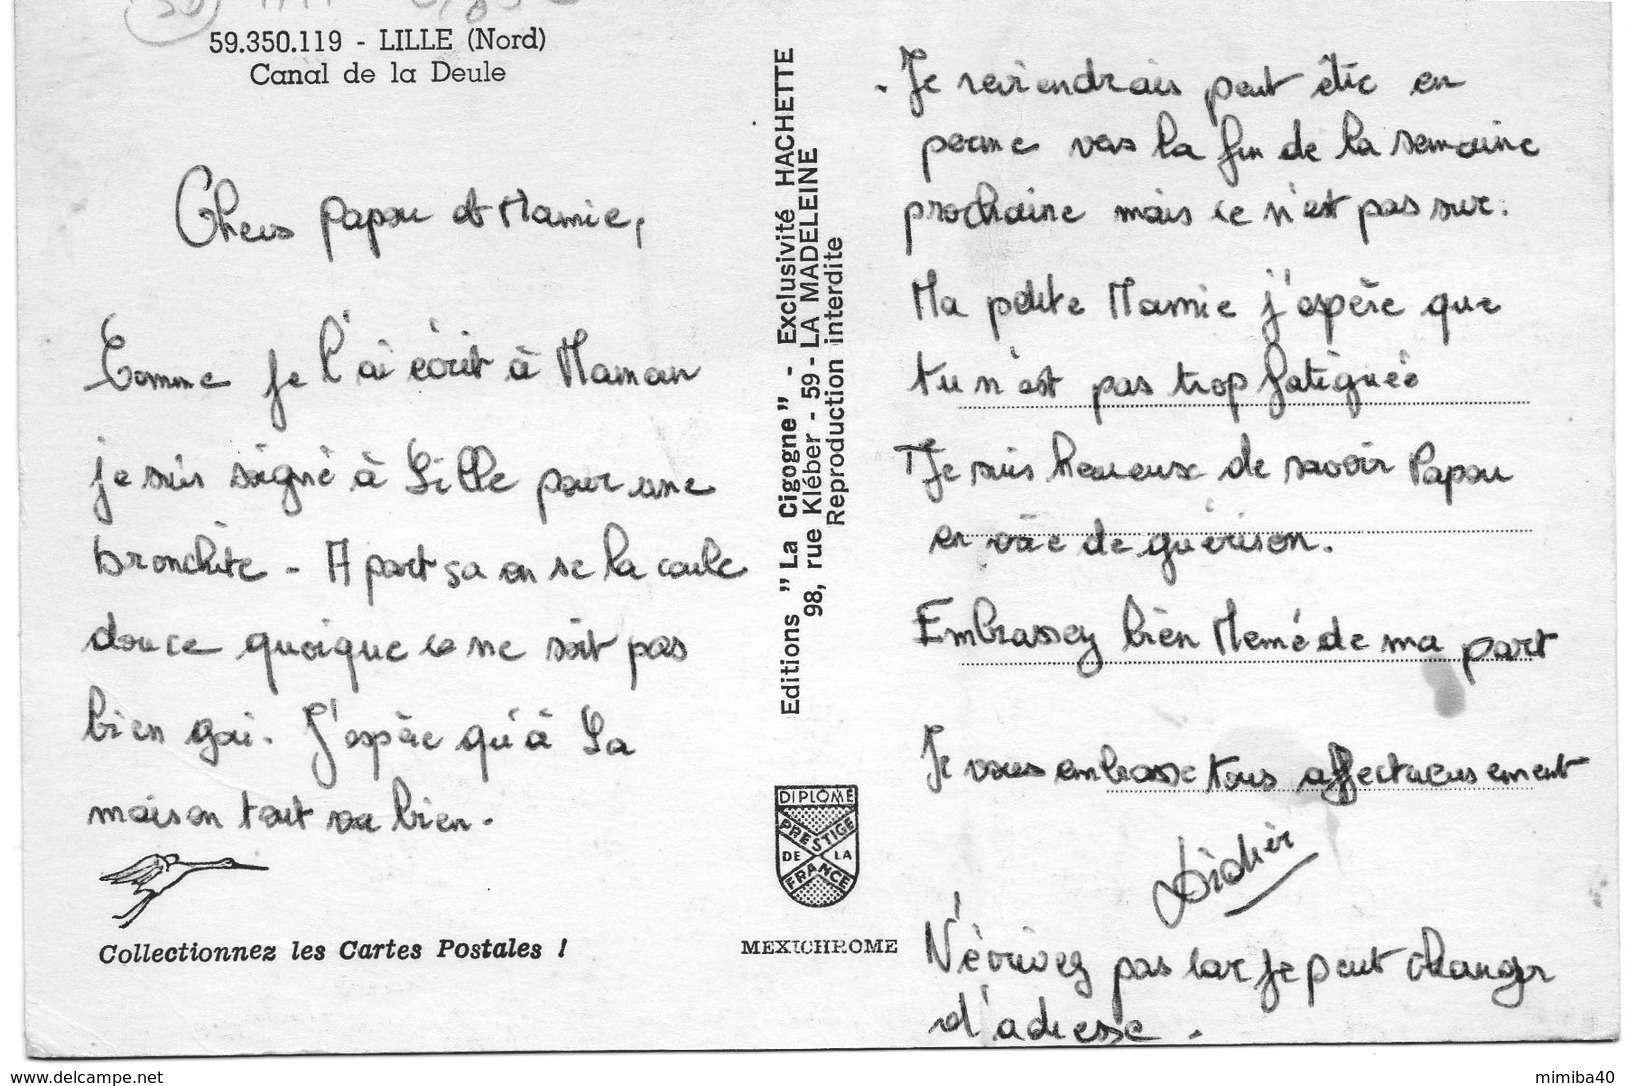 59.350.119 - LILLE (Nord)
Canal de la Deule
Chers Papou et Mamie,
Comme je l'ai écrit à Maman
je suis soigné à Lille pour une
bronchite - A part ça on se la coule
douce quoique ce ne soit pas
bien gai. J'espère qu'à La
maison tout va bien.
Collectionnez les Cartes Postales !
Editions "La Cigogne" - Exclusivité HACHETTE
98, rue Kléber - 59 - LA MADELEINE
Reproduction interdite
DIPLÔME
PRESTIGE
DE LA
FRANCE
MEXICHROME
Je reviendrais peut être en
perme vers la fin de la semaine
prochaine mais ce n'est pas sur.
Ma petite Mamie j'espère que
tu n'est pas trop fatiguée
Je suis heureux de savoir Papou
en voie de guérison.
Embrassez bien Memé de ma part
Je vous embrasse tous affectueusement
Didier
N'écrivez pas car je peut changer
d'adresse.
www.delcampe.net
mimiba40